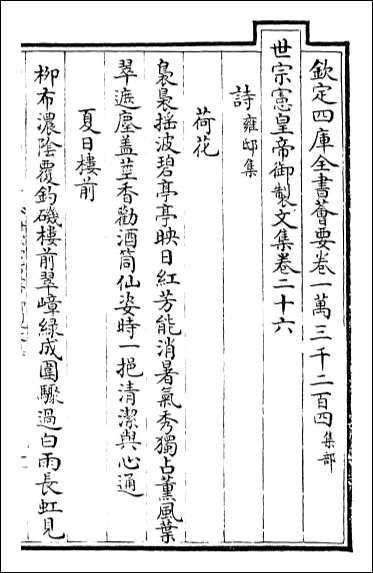 欽定四庫全書薈要卷一萬三千二百四集部
世宗憲皇帝御製文集卷二十六
詩雍邸集
荷花
裊裊搖波碧亭亭映日紅芳能消暑氣秀獨占薰風葉
翠遮塵蓋莖香勸酒筒仙姿時一挹清潔與心通
夏日樓前
柳布濃陰覆釣磯樓前翠嶂綠成圍驟過白雨長虹見